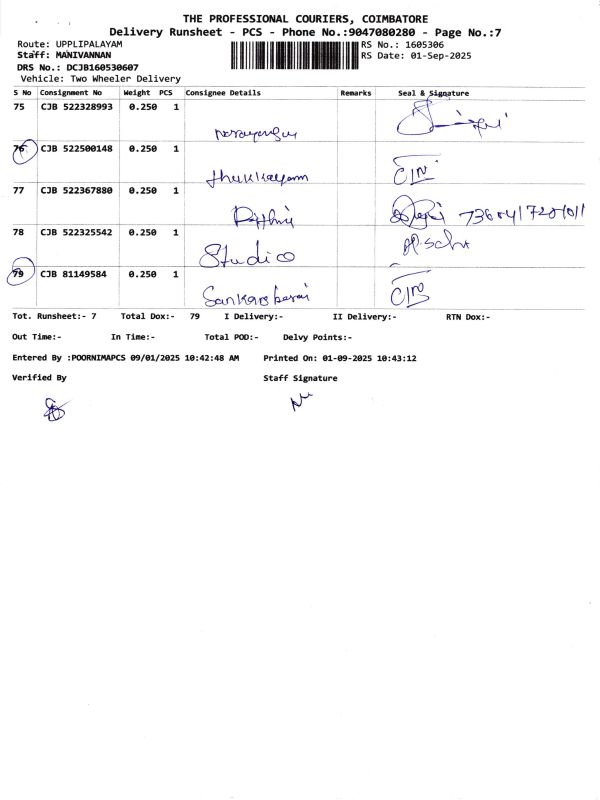 THE PROFESSIONAL COURIERS, COIMBATORE
Delivery Runsheet - PCS - Phone No.:9047080280 - Page No.:7
Route: UPPLIPALAYAM RS No.: 1605306
Staff: MANIVANNAN RS Date: 01-Sep-2025
DRS No.: DCJB160530607
Vehicle: Two Wheeler Delivery
S No Consignment No Weight PCS Consignee Details Remarks Seal & Signature
75 CJB 522328993 0.250 1
76 CJB 522500148 0.250 1
77 CJB 522367880 0.250 1
78 CJB 522325542 0.250 1
Studio
79 CJB 81149584 0.250 1
Tot. Runsheet:- 7 Total Dox:- 79 I Delivery:- II Delivery:- RTN Dox:-
Out Time:- In Time:- Total POD:- Delvy Points:-
Entered By :POORNIMAPCS 09/01/2025 10:42:48 AM Printed On: 01-09-2025 10:43:12
Verified By Staff Signature